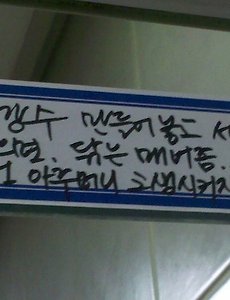 강수 만들어놓고 서
으면. 닦는 매너좀.
아주머니 고생시키지